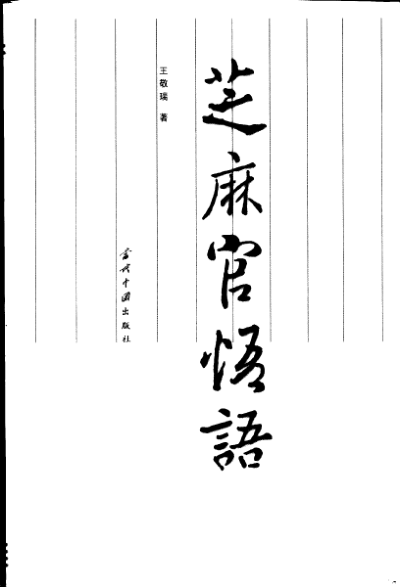 芝麻官悟語
王敬瑞 著
当代中国出版社